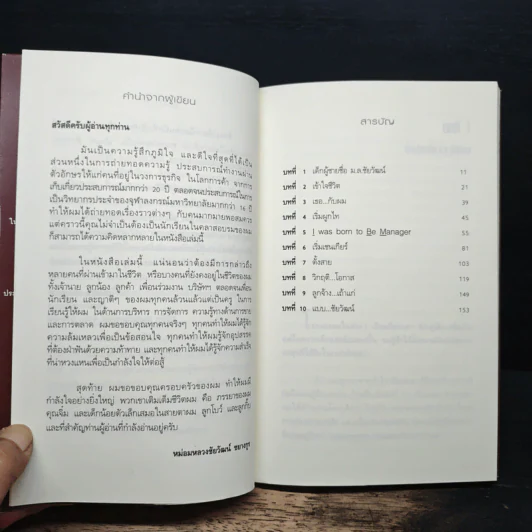 คำนำจากผู้เขียน
สวัสดีครับผู้อ่านทุกท่าน
มันเป็นความรู้สึกภูมิใจ และดีใจที่สุดที่ได้เป็น
ส่วนหนึ่งในการถ่ายทอดความรู้ ประสบการณ์ทำงานผ่าน
ตัวอักษรให้แก่คนที่อยู่ในวงการธุรกิจ ในโลกการค้า จากการ
เก็บเกี่ยวประสบการณ์มากกว่า 20 ปี ตลอดจนประสบการณ์ในการ
เป็นวิทยากรประจำของจุฬาลงกรณ์มหาวิทยาลัยมากกว่า 16 ปี
ทำให้ผมได้ถ่ายทอดเรื่องราวต่างๆ กับคนมากมายพอสมควร
แต่คราวนี้คุณไม่จำเป็นต้องเป็นนักเรียนในคลาสอบรมของผม
ก็สามารถได้ความคิดหลากหลายในหนังสือเล่มนี้
ในหนังสือเล่มนี้ แน่นอนว่าต้องมีการกล่าวถึง
หลายคนที่ผ่านเข้ามาในชีวิต หรือบางคนที่ยังคงอยู่ในชีวิตของผม
ทั้งเจ้านาย ลูกน้อง ลูกค้า เพื่อนร่วมงาน บริษัทฯ ตลอดจนเพื่อน
นักเรียน และญาติๆ ของผมทุกคนล้วนแล้วแต่เป็นครู ในการ
เรียนรู้ให้ผม ในด้านการบริหาร การจัดการ ความรู้ทางด้านการขาย
และการตลาด ผมขอขอบคุณทุกคนจริงๆ ทุกคนทำให้ผมได้รู้จัก
ความล้มเหลวเพื่อเป็นข้อสอนใจ ทุกคนทำให้ผมรู้จักอุปสรรค
ที่ต้องฝ่าฟันด้วยความท้าทาย และทุกคนทำให้ผมได้รู้จักความสำเร็จ
ที่น่าหวงแหนเพื่อเป็นกำลังใจให้ต่อสู้
สุดท้าย ผมขอขอบคุณครอบครัวของผม ทำให้ผมมี
กำลังใจอย่างยิ่งใหญ่ พวกเขาเติมเต็มชีวิตผม คือ ภรรยาของผม
คุณจิ๋ม และเด็กน้อยตัวเล็กเสมอในสายตาผม ลูกโบว์ และลูกกิ๊บ
และที่สำคัญท่านผู้อ่านที่กำลังอ่านอยู่ครับ
หม่อมหลวงชัยวัฒน์ ชยางกูร
สารบัญ
บทที่ 1 เด็กผู้ชายชื่อ ม.ล.ชัยวัฒน์ 11
บทที่ 2 เข้าใจชีวิต 21
บทที่ 3 เธอ...กับผม 39
บทที่ 4 เริ่มผูกไท 45
บทที่ 5 I was born to Be Manager 55
บทที่ 6 เริ่มเซนเกียร์ 81
บทที่ 7 ตั้งสาย 103
บทที่ 8 วิกฤติ...โอกาส 119
บทที่ 9 ลูกจ้าง...เถ้าแก่ 149
บทที่ 10 แบบ...ชัยวัฒน์ 153